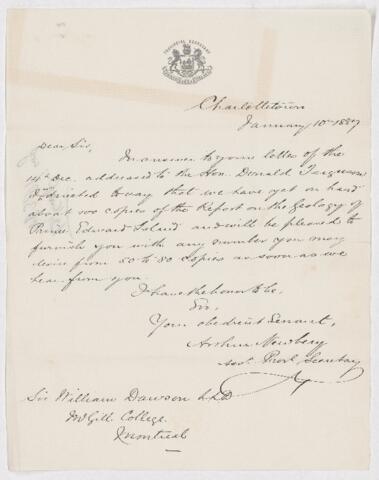 PROVINCIAL SECRETARY
Charlottetown
January 10th 1887
Dear Sir,
In answer to your letter of the
14th Dec. addressed to the Hon. Donald Ferguson
I am directed to say that we have yet on hand
about 100 copies of the Report on the Geology of
Prince Edward Island and will be pleased to
furnish you with any number you may
desire from 50 to 80 copies as soon as we
hear from you.
I have the honor to be
Sir,
Your obedient Servant,
Arthur Newbery
Asst. Provl Secretary
Sir William Dawson LLD
McGill College
Montreal